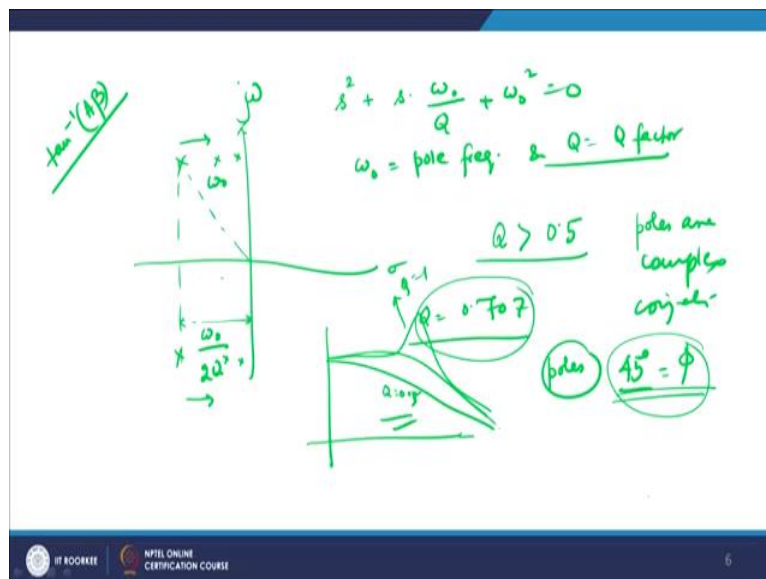 tan⁻¹(Aβ)
jω
s² + s· ω₀/Q + ω₀² = 0
ω₀ = pole freq. & Q = Q factor
ω₀
Q > 0.5
poles are
complex
σ
Q=1
Q = 0.707
ω₀/2Q
poles
45° = φ
IIT ROORKEE
NPTEL ONLINE
CERTIFICATION COURSE
6